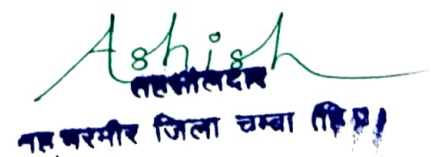 Ashish
तहसीलदार
तह भरमौर जिला चम्बा (हि प्र)